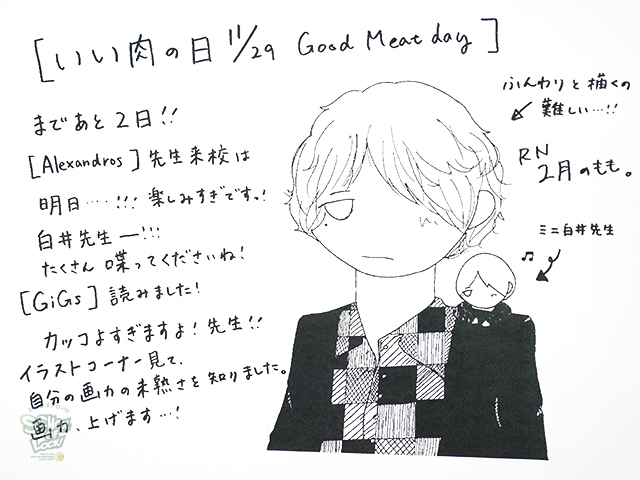 [いい肉の日 11/29 Good Meat day]
まであと2日!!
[Alexandros]先生来校は
明日……!!! 楽しみすぎですっ!
白井先生ー!!!
たくさん喋ってくださいね!
[GiGs]読みました!
カッコよすぎますよ!先生!!
イラストコーナー見て、
自分の画力の未熟さを知りました。
画力、上げます…!
ふんわりと描くの
難しい…!!
RN
2月のもも。
ミニ白井先生
♫